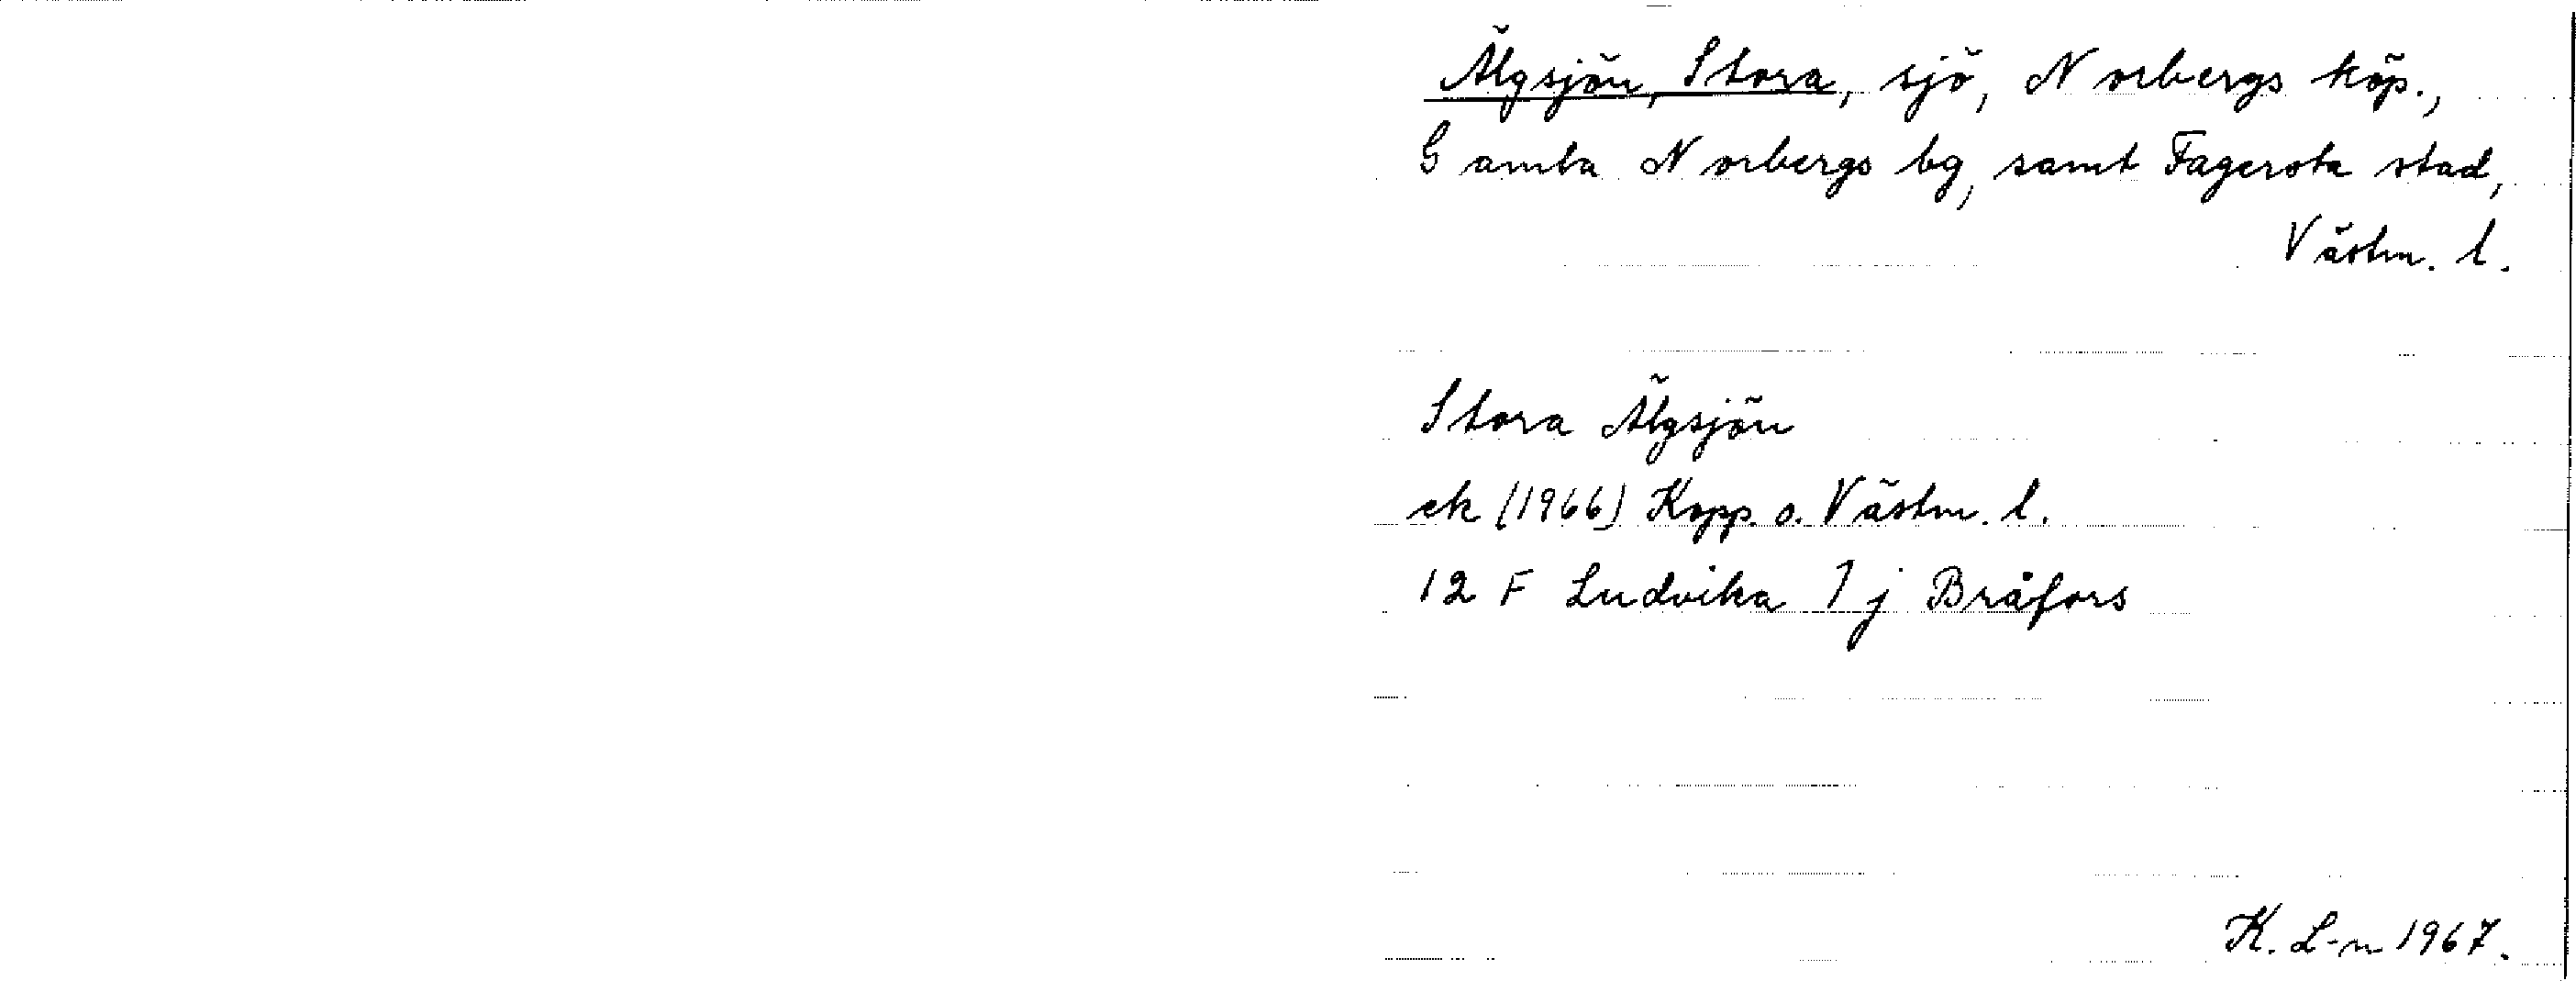 Älgsjön, Stora, sjö, Norbergs köp.,
Gamla Norbergs bg, samt Fagersta stad,
Västm. l.
Stora Älgsjön
ek (1966) Kopp. o. Västm. l.
12 F Ludvika 1 j Bråfors
K. L-n 1967.